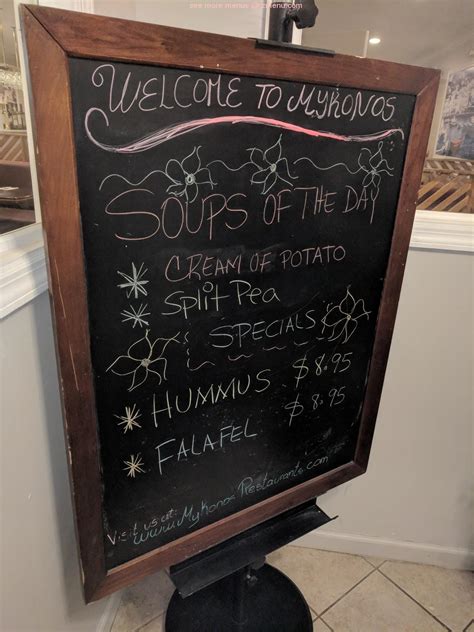 WELCOME TO MYKONOS
SOUPS OF THE DAY
CREAM OF POTATO
Split Pea
SPECIALS
HUMMUS $8.95
FALAFEL $8.95
Visit us at:
www.MykonosRestaurants.com